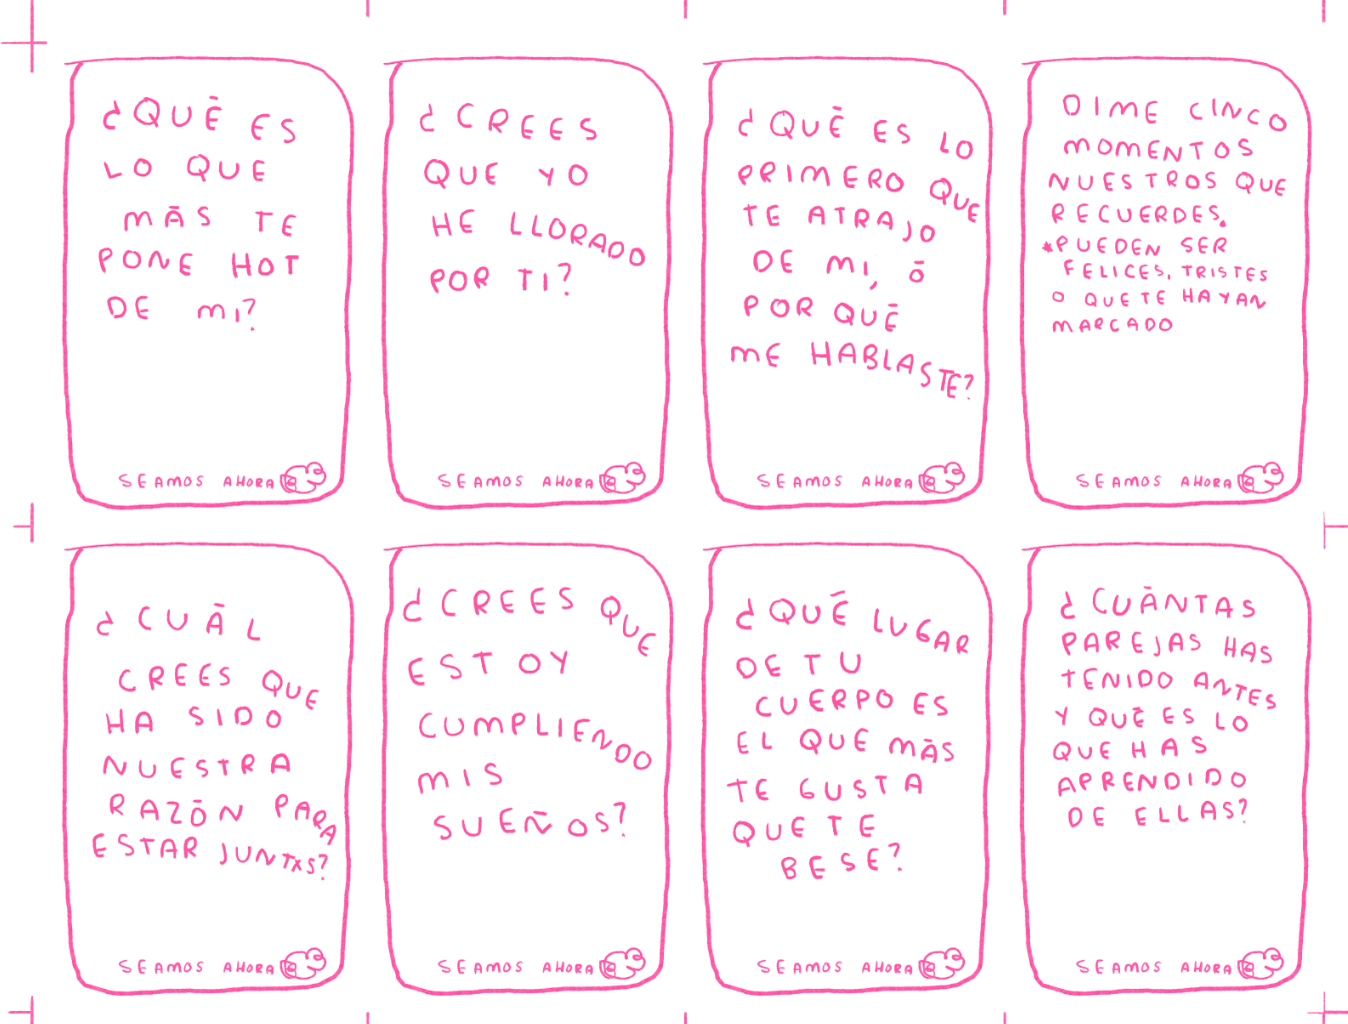 ¿QUÉ ES
LO QUE
MÁS TE
PONE HOT
DE MI?
SEAMOS AHORA
¿CREES
QUE YO
HE LLORADO
POR TI?
SEAMOS AHORA
¿QUÉ ES LO
PRIMERO QUE
TE ATRAJO
DE MI, Ó
POR QUÉ
ME HABLASTE?
SEAMOS AHORA
DIME CINCO
MOMENTOS
NUESTROS QUE
RECUERDES.
*PUEDEN SER
FELICES, TRISTES
O QUE TE HAYAN
MARCADO
SEAMOS AHORA
¿CUÁL
CREES QUE
HA SIDO
NUESTRA
RAZÓN PARA
ESTAR JUNTXS?
SEAMOS AHORA
¿CREES QUE
ESTOY
CUMPLIENDO
MIS
SUEÑOS?
SEAMOS AHORA
¿QUÉ LUGAR
DE TU
CUERPO ES
EL QUE MÁS
TE GUSTA
QUE TE
BESE?
SEAMOS AHORA
¿CUÁNTAS
PAREJAS HAS
TENIDO ANTES
Y QUÉ ES LO
QUE HAS
APRENDIDO
DE ELLAS?
SEAMOS AHORA